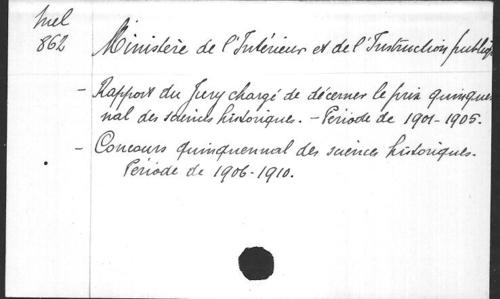 Mel
862
Ministère de l'Intérieur et de l'Instruction publiq
- Rapport du Jury chargé de décerner le prix quinquen
nal des sciences historiques. - Période de 1901-1905.
- Concours quinquennal des sciences historiques.
Période de 1906-1910.